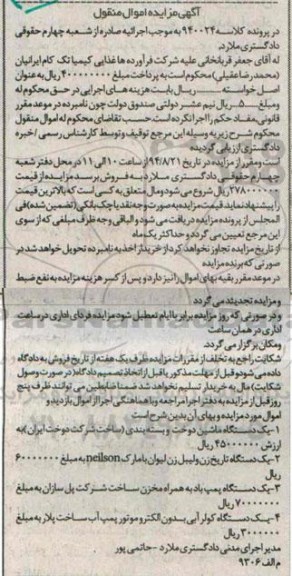 آگهی مزایده اموال منقول
در پرونده کلاسه ۹۴۰۰۲۴ به موجب اجرائیه صادره از شعبه چهارم حقوقی
دادگستری ملارد
له آقای جعفر قربانخانی علیه شرکت فرآورده ها غذایی کیمیا تک کام ایرانیان
(محمدرضا عقیلی) محکوم است به پرداخت مبلغ ۴۰۰۰۰۰۰۰۰ ریال به عنوان
اصل خواسته ........ ریال بابت هزینه های اجرایی در حق محکوم له
و مبلغ ....۵ ریال نیم عشر دولتی صندوق دولت چون نامبرده در موعد مقرر
قانونی مفاد حکم را اجرا نکرده است. حسب تقاضای محکوم له اموال منقول
محکوم شرح زیر به وسیله این مرجع توقیف و توسط کارشناس رسمی /خبره
دادگستری ارزیابی گردیده
است و مقرر از مزایده در تاریخ ۹۴/۸/۲۱ از ساعت ۱۰ الی ۱۱ در محل دفتر شعبه
چهارم حقوقی دادگستری ملارد به فروش برسد مزایده از قیمت
۲۷۸۰۰۰۰۰۰ ریال شروع می شود و مال متعلق به کسی است که بالاترین قیمت
را پیشنهاد نماید قیمت مزایده به صورت وجه نقد یا چک بانکی (تضمین شده) فی
المجلس از برنده مزایده دریافت می شود و الباقی وجه ظرف مبلغی که از سوی
این مرجع تعیین می گردد و حداکثر یک ماه
از تاریخ مزایده تجاوز نخواهد کرد از خریدار اخذ به نامبرده تحویل خواهد شد در
صورتی که برنده مزایده
در موعد مقرر بقیه بهای اموال را نپردازد و پس از کسر هزینه مزایده به نفع ضبط
و مزایده تجدید می گردد.
و در صورتی که روز مزایده برابر با ایام تعطیل شود مزایده فردای اداری در ساعت
اداری در همان ساعت
و مکان برگزار می گردد.
شکایت راجع به تخلف از مقررات مزایده ظرف یک هفته از تاریخ فروش به دادگاه
داده می شود و قبل از مهلت مذکور یا قبل از اتخاذ تصمیم دادگاه (در صورت وصول
شکایت) مال به خریدار تسلیم نخواهد شد ضمنا طالبین می توانند ظرف پنج
روز قبل از مزایده به دفتر اجرا مراجعه و با هماهنگی اجرا از اموال بازدید و
اموال مورد مزایده و بهای آن بدین شرح است
۱-یک دستگاه ماشین دوخت و بسته بندی (ساخت شرکت دوخت ایران) به
ارزش ۴۵۰۰۰۰۰۰ ریال
۲-یک دستگاه تاریخ زن و لیبل زن لیوان با مارک neilson به مبلغ ۶۰۰۰۰۰۰۰
ریال
۳-یک دستگاه پمپ باد به همراه مخزن ساخت شرکت پل سازان به مبلغ
۷۰۰۰۰۰۰ ریال
۴-یک دستگاه کولر آبی بدون الکترو موتور پمپ آب ساخت پلار به مبلغ
۳۰۰۰۰۰۰ ریال
مدیر اجرای مدنی دادگستری ملارد - حاتمی پور
م الف ۹۳۰۶